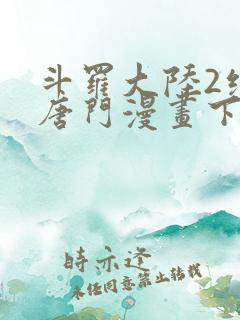 斗羅大陸2絕
唐門漫畫下
時亦逐
未經同意禁止轉載